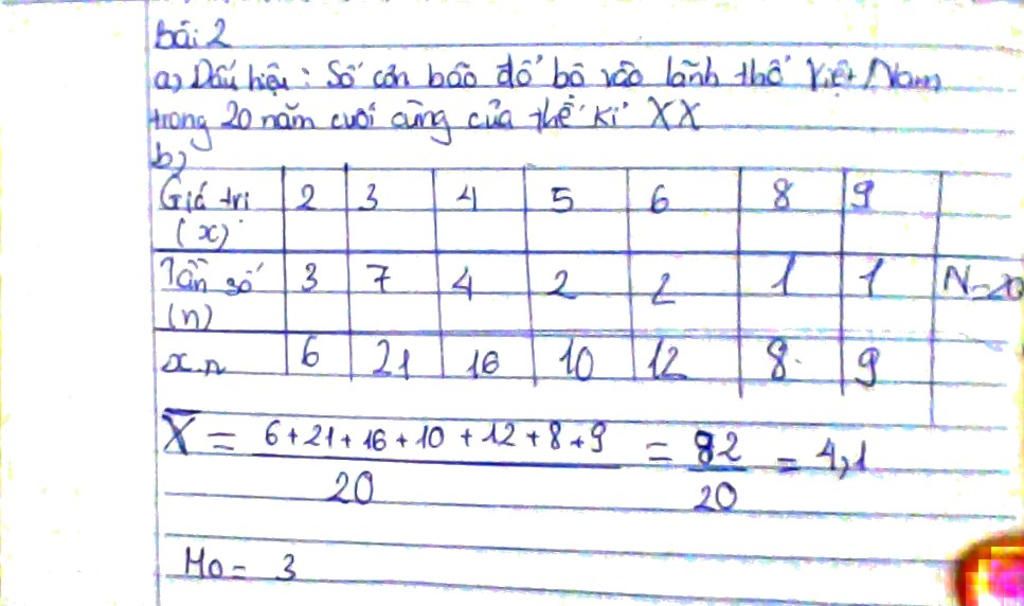 bài 2
a) Dấu hiệu: Số cơn bão đổ bộ vào lãnh thổ Việt Nam
trong 20 năm cuối cùng của thế kỉ XX
b)
Giá trị (x) 2 3 4 5 6 8 9
Tần số (n) 3 7 4 2 2 1 1 N=20
x.n 6 21 16 10 12 8 9
X̄ = (6+21+16+10+12+8+9)/20 = 82/20 = 4,1
Mo = 3